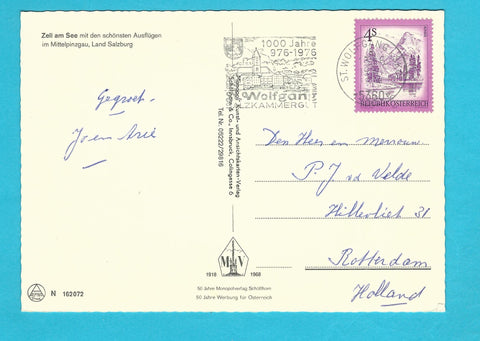 Zell am See mit den schönsten Ausflügen
im Mittelpinzgau, Land Salzburg
1000 Jahre
976-1976
Wolfgan
LZKAMMERG
ST. WOLFGANG
5360
4s
REPUBLIK ÖSTERREICH
Gegroet.
Jo en Arie
Monopol Kunst- und Ansichtskarten-Verlag
Schöllhorn & Co., Innsbruck, Colingasse 6
Tel. Nr. 05222/29816
Den Heer en mevrouw
P. J. vd Velde
31
Rotterdam
Holland
M V
1918 1968
50 Jahre Monopolverlag Schöllhorn
50 Jahre Werbung für Österreich
N 162072